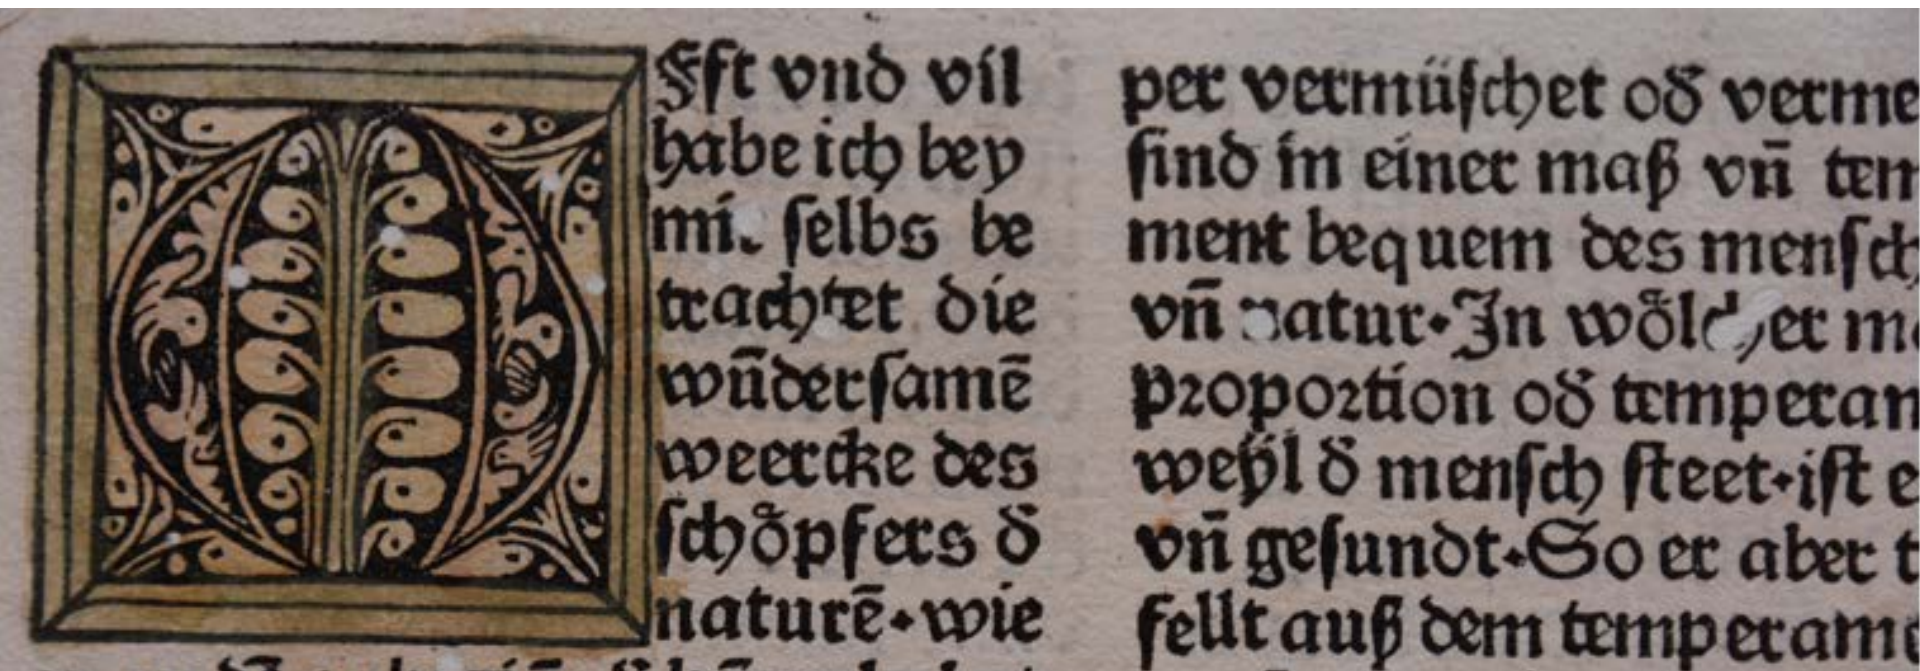 OFft vnd vil
habe ich bey
mir selbs be
trachtet die
wūdersamē
weercke des
schoͤpfers d̕
naturē·wie
per vermüschet od̕ verme
sind in einer maß vn̄ tem
ment bequem des mensch
vn̄ natur·In woͤlcher m
proportion od̕ temperan
weÿl d̕ mensch steet·ist e
vn̄ gesundt·So er aber t
fellt auß dem temperame